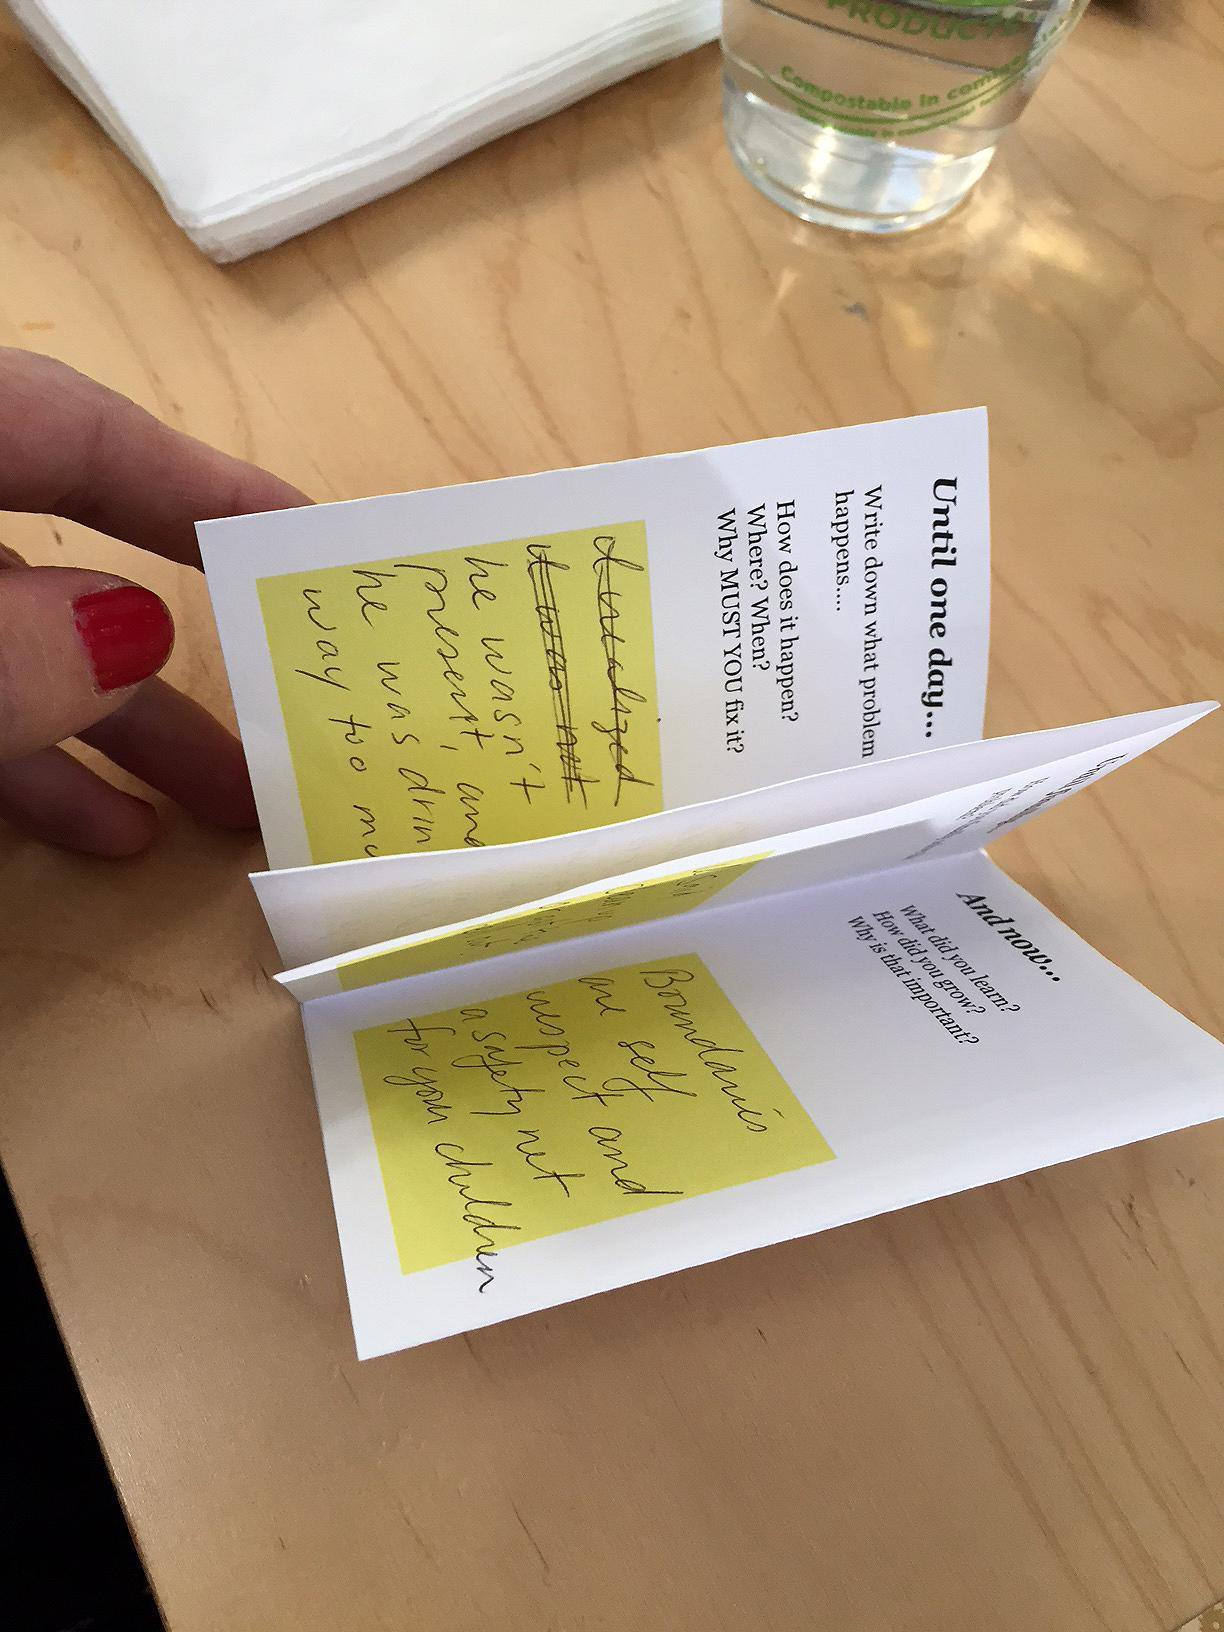 PRODUCTS
Compostable in
Until one day...
Write down what problem
happens....
How does it happen?
Where? When?
Why MUST YOU fix it?
I realized
it was not
he wasn't
present, and
he was drin
way too mu
And now...
What did you learn?
How did you grow?
Why is that important?
Boundaries
are self
respect and
a safety net
for your children